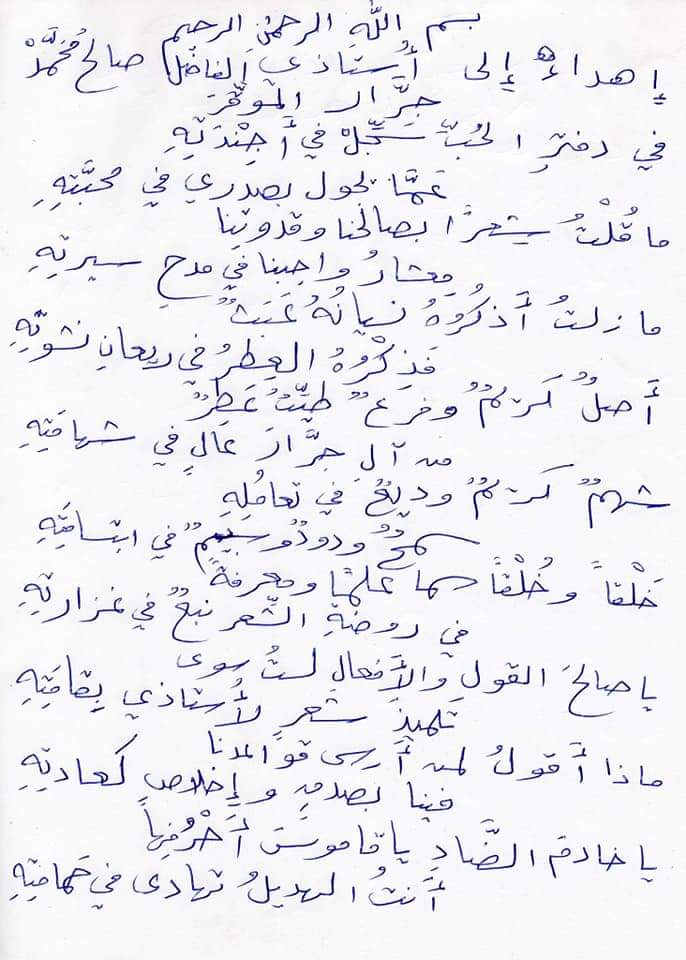 بسم اللهِ الرحمن الرحيم
إهداءٌ إلى أُستاذي الفاضل صالح مُحَمَّدْ
جرَّار المُوقَّرَ
في دفترِ الحُبِّ سَجِّلْ في أَجِنْدَتِهِ
عَمَّا يجول بصدري في محبَّتِهِ
ما قُلْتُ شِعرًا بصالحنا وقدوتِنا
مِعشارُ واجبنا في مدحِ سيرتِهِ
ما زلتُ أَذكُرُهُ نسيانُهُ عَبَثٌ
فَذِكْرُهُ العِطرُ في ريعانِ نشوتِهِ
أَصلٌ كريمٌ وفرعٌ طيِّبٌ عَطِرٌ
من آلِ جرَّارَ عَالٍ في شهامَتِهِ
شهمٌ كريمٌ وديعٌ في تعامُلِهِ
سمحٌ ودودٌ وسيمٌ في ابتسامَتِهِ
خَلْقاً وخُلْقاً سما علمًا ومعرفةً
في روضةِ الشِّعر نبعٌ في غزارتِهِ
يا صالحَ القولِ والأَفعالِ لستُ سوى
تلميذِ شعرٍ لأُستاذي بِقامَتِهِ
ماذا أَقولُ لمن أَرسى قواعدنا
فينا بصدقٍ وإخلاصٍ كعادتِهِ
يا خادمَ الضَّادِ يا قاموسَ أَحْرُفِهاَ
أَنتُ الهديلُ تهادى في حمامتِهِ